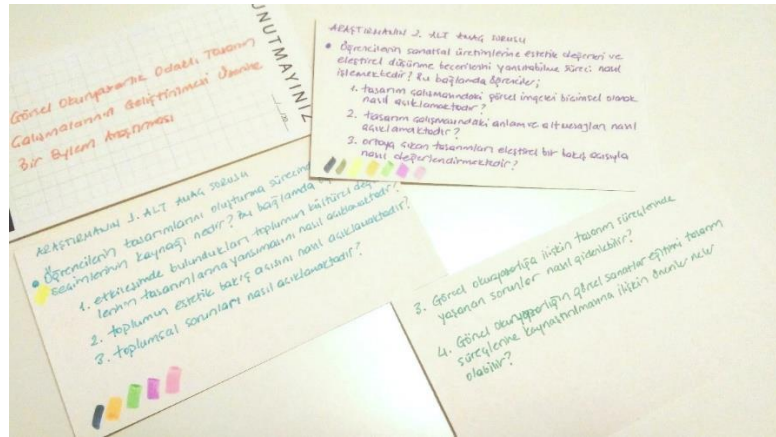 Görsel Okuryazarlık Odaklı Tasarım
Çalışmalarının Geliştirilmesi Üzerine
Bir Eylem Araştırması
UNUTMAYINIZ
ARAŞTIRMANIN 2. ALT AMAÇ SORUSU
• Öğrencilerin sanatsal üretimlerine estetik değerleri ve
eleştirel düşünme becerilerini yansıtabilme süreci nasıl
işlemektedir? Bu bağlamda öğrenciler;
1. tasarım çalışmasındaki görsel imgeleri biçimsel olarak
nasıl açıklamaktadır?
2. tasarım çalışmasındaki anlam ve alt mesajları nasıl
açıklamaktadır?
3. ortaya çıkan tasarımları eleştirel bir bakış açısıyla
nasıl değerlendirmektedir?
ARAŞTIRMANIN 1. ALT AMAÇ SORUSU
• Öğrencilerin tasarımlarını oluşturma sürecinde
seçimlerinin kaynağı nedir? Bu bağlamda
1. etkileşimde bulundukları toplumun kültürel değer
lerinin tasarımlarına yansımasını nasıl açıklamaktadır?
2. toplumun estetik bakış açısını nasıl açıklamaktadır?
3. toplumsal sorunları nasıl açıklamaktadır?
3. Görsel okuryazarlığa ilişkin tasarım süreçlerinde
yaşanan sorunlar nasıl giderilebilir?
4. Görsel okuryazarlığın görsel sanatlar eğitimi tasarım
süreçlerine kaynaştırılmasına ilişkin öneriler neler
olabilir?